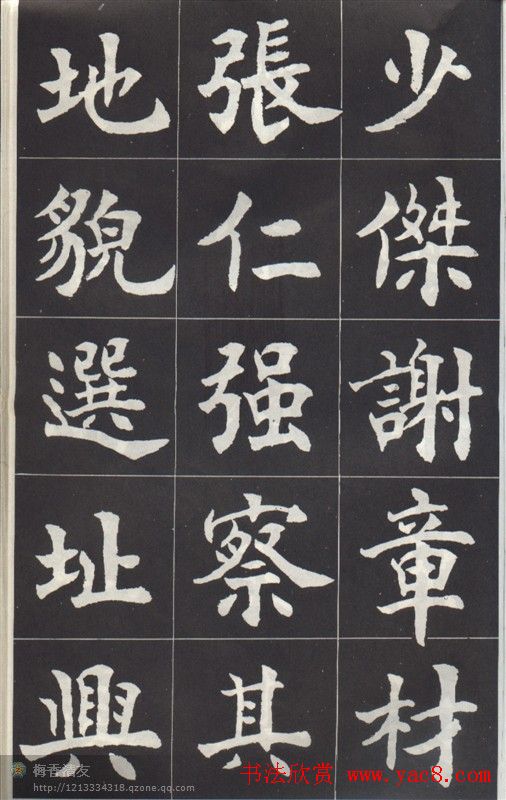 少傑謝章材
張仁强察其
地貌選址興
梅香清友
http://1213334318.qzone.qq.com
书法欣赏 www.yac8.com